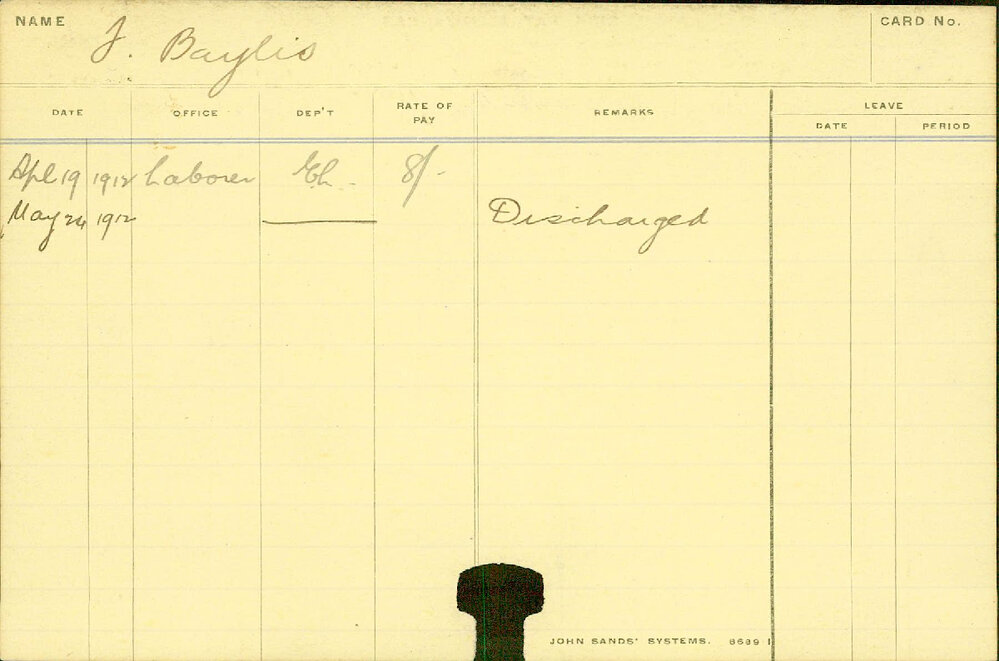 NAME
J. Baylis
CARD No.
DATE OFFICE DEP'T RATE OF PAY REMARKS LEAVE
DATE PERIOD
Apl 19 1912 Laborer Eh. 8/-
May 24 1912 Discharged
JOHN SANDS' SYSTEMS. 8689